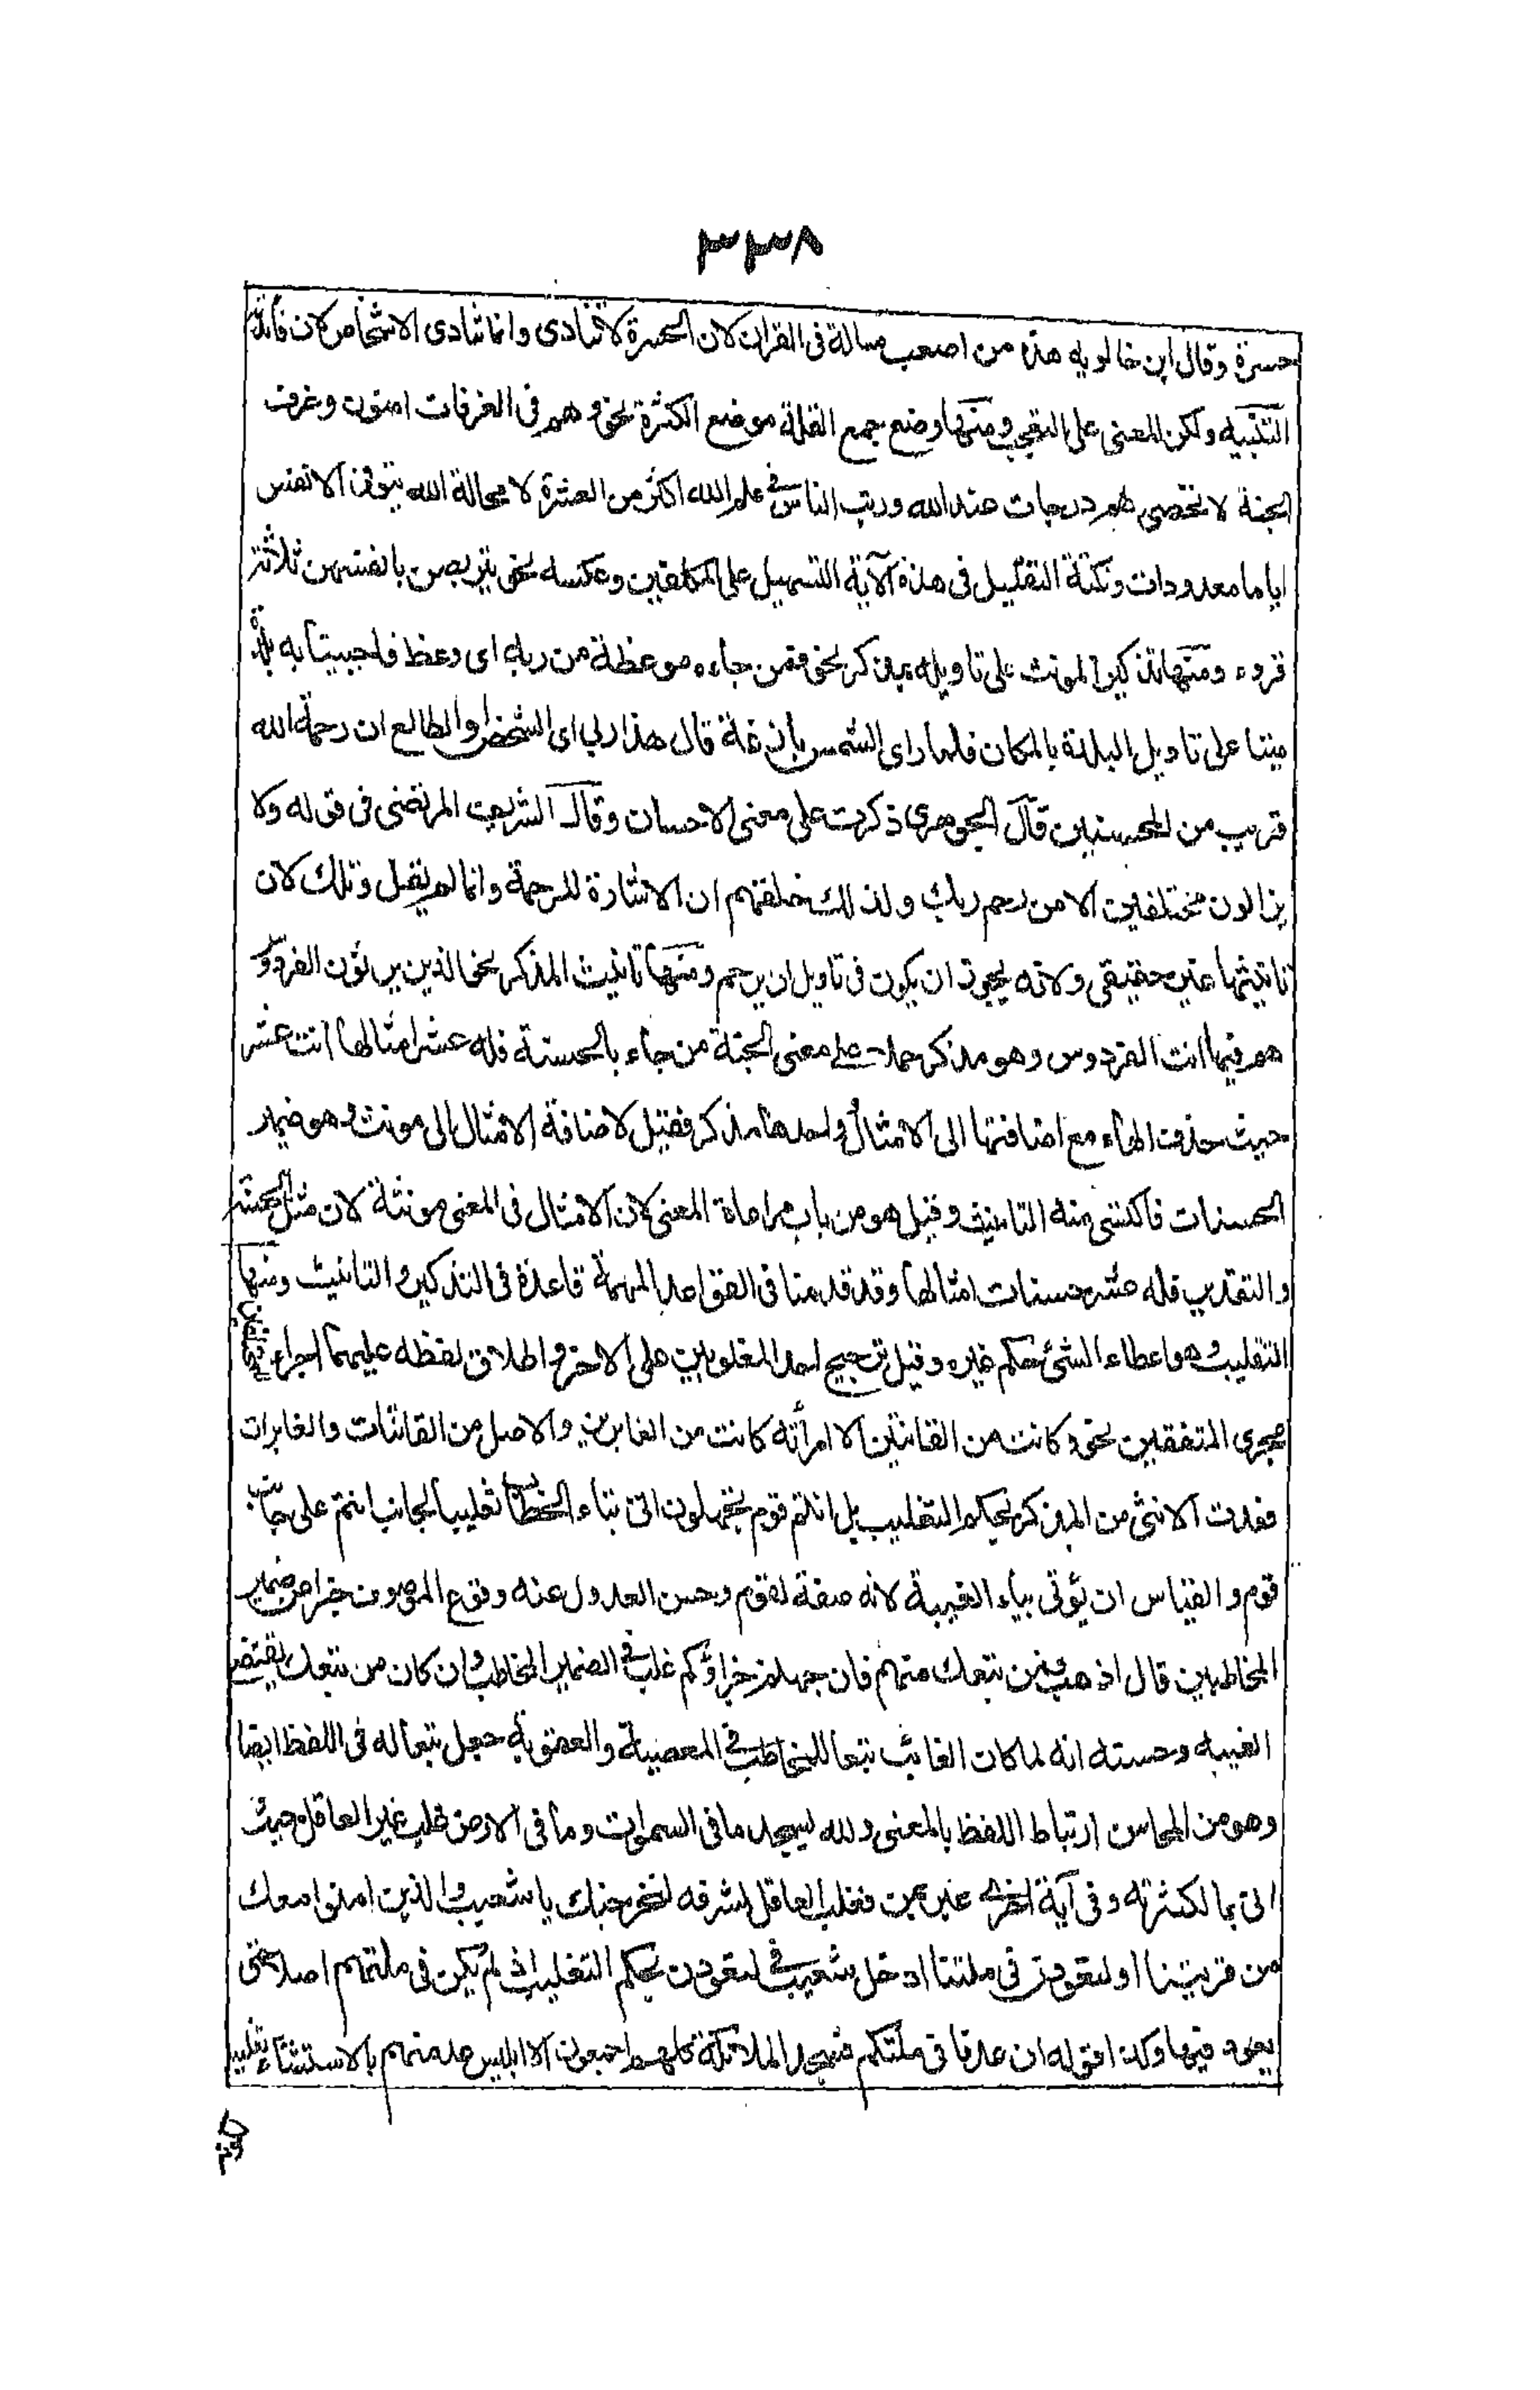 ٣٣٨
حسرة وقال ابن خالويه هذه من اصعب مسالة فى القران لان الحسرة لا تنادى وانما تنادى الاشخاص لان فائدته
التنبيه ولكن المعنى على التعجب ومنها وضع جمع القلة موضع الكثرة نحو وهم فى الغرفات امنون وغرف
الجنة لا تحصى لهم درجات عند الله ورتب الناس فى علم الله اكثر من العشرة لا محالة الله يتوفى الانفس
اياما معدودات ونكتة التقليل فى هذه الآية التسهيل على المكلفين وعكسه نحو يتربصن بانفسهن ثلاثة
قروء ومنها تذكير المونث على تاويله بمذكر نحو فمن جاءه موعظة من ربه اى وعظ فاحيينا به بلدة
ميتا على تاويل البلدة بالمكان فلما راى الشمس بازغة قال هذا ربى اى الشخص او الطالع ان رحمة الله
قريب من المحسنين قال الجوهرى ذكرت على معنى الاحسان وقال الشريف المرتضى فى قوله ولا
يزالون مختلفين الا من رحم ربك ولذلك خلقهم ان الاشارة للرحمة وانما لم يقل وتلك لان
تانيثها غير حقيقى ولانه يجوز ان يكون فى تاويل ان يرحم ومنها تانيث المذكر نحو الذين يرثون الفردوس
هم فيها انث الفردوس وهو مذكر حملا على معنى الجنة من جاء بالحسنة فله عشر امثالها انث عشر
حيث حذفت الهاء مع اضافتها الى الامثال وواحدها مذكر فقيل لاضافة الامثال الى مونث وهو ضمير
الحسنات فاكتسى منه التانيث وقيل هو من باب مراعاة المعنى لان الامثال فى المعنى مونثة لان مثل الحسنة
والتقدير فله عشر حسنات امثالها وقد قدمنا فى القواعد المهمة قاعدة فى التذكير والتانيث ومنها
التغليب وهو اعطاء الشئ حكم غيره وقيل ترجيح احد المغلوبين على الاخر واطلاق لفظه عليهما اجراء للمختلفين
مجرى المتفقين نحو وكانت من القانتين الا امرأته كانت من الغابرين والاصل من القانتات والغابرات
فعدت الانثى من المذكر بحكم التغليب بل انتم قوم تجهلون اتى بتاء الخطاب تغليبا لجانب انتم على جانب
قوم والقياس ان يؤتى بياء الغيبة لانه صفة لقوم وحسن العدول عنه وقوع الموصوف خبرا عن ضمير
المخاطبين قال اذهب فمن تبعك منهم فان جهنم جزاؤكم غلب فى الضمير المخاطب وان كان من تبعك يقتضى
الغيبه وحسنه انه لما كان الغائب تبعا للمخاطب فى المعصية والعقوبة جعل تبعا له فى اللفظ ايضا
وهو من المحاسن ارتباط اللفظ بالمعنى ولله يسجد ما فى السموات وما فى الارض غلب غير العاقل حيث
اتى بما لكثرته وفى آية اخرى عبر بمن فغلب العاقل لشرفه لنخرجنك يا شعيب والذين امنوا معك
من قريتنا او لتعودن فى ملتنا ادخل شعيب فى لتعودن بحكم التغليب اذ لم يكن فى ملتهم اصلا حتى
يعود فيها وكذا قوله ان عدنا فى ملتكم فسجد الملائكة كلهم اجمعون الا ابليس عد منهم بالاستثناء تغليبا